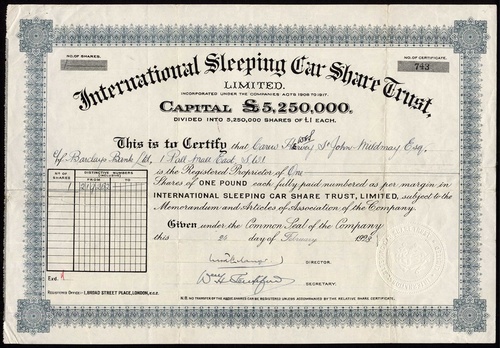 NO. OF SHARES.
NO. OF CERTIFICATE.
743
International Sleeping Car Share Trust,
LIMITED.
INCORPORATED UNDER THE COMPANIES ACTS 1908 TO 1917.
CAPITAL £5,250,000.
DIVIDED INTO 5,250,000 SHARES OF £1 EACH.
This is to Certify that Carew St John Mildmay Esq.
c/o Barclays Bank Ltd, 1 Pall Mall East, S.W.1
is the Registered Proprietor of One
Shares of ONE POUND each fully paid numbered as per margin in
INTERNATIONAL SLEEPING CAR SHARE TRUST, LIMITED, subject to the
Memorandum and Articles of Association of the Company.
NO OF SHARES
DISTINCTIVE NUMBERS (INCLUSIVE)
FROM TO
1
Given under the Common Seal of the Company
this 24 day of February 1928
DIRECTOR.
SECRETARY.
Exd.
REGISTERED OFFICE:- 1, BROAD STREET PLACE, LONDON, E.C.2.
N.B. NO TRANSFER OF THE ABOVE SHARES CAN BE REGISTERED UNLESS ACCOMPANIED BY THE RELATIVE SHARE CERTIFICATE.